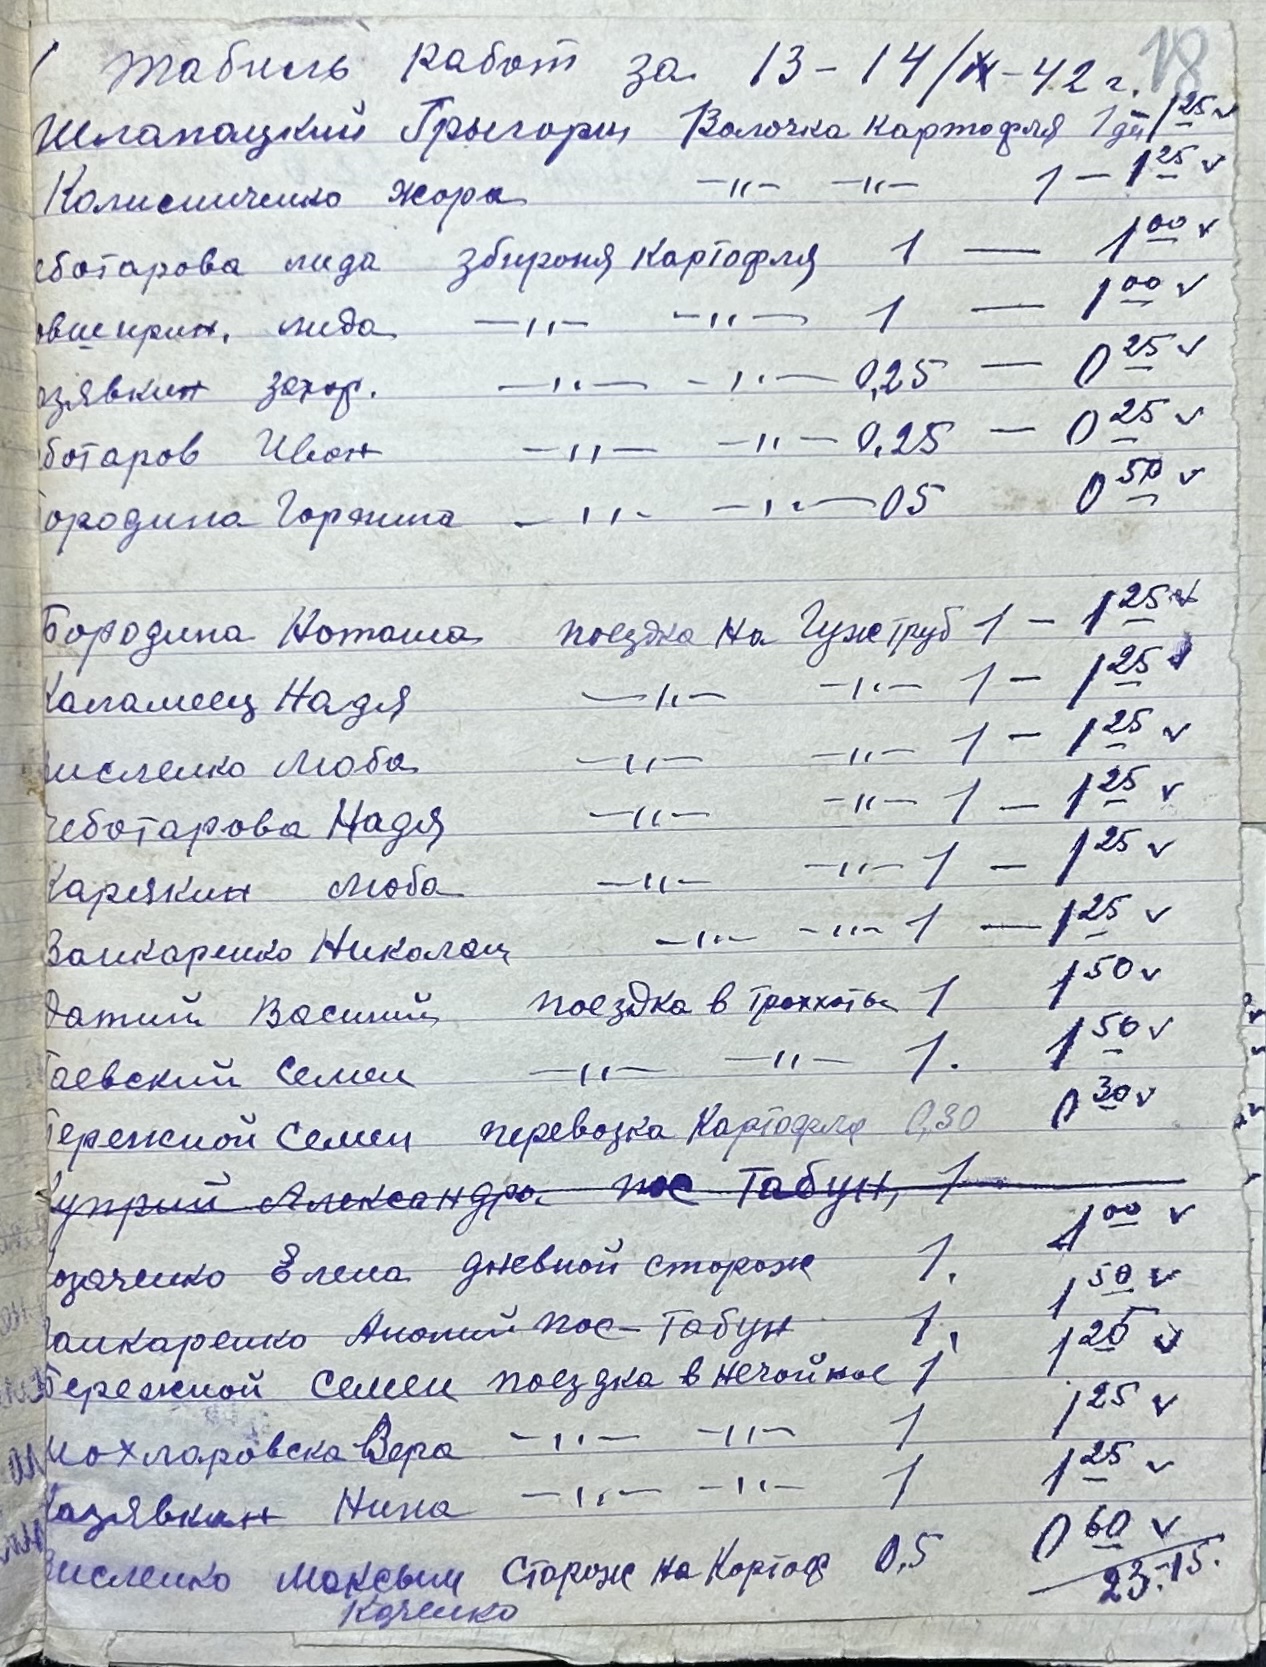 18
Табиль работ за 13-14/X-42 г.
Шлапацкий Грыгорий Волочка картофля 1 дн 1 25 v
Колисниченко жора —"— —"— 1 — 1 25 v
еботарова лида збироня Картофля 1 — 1 00 v
лида —"— —"— 1 — 1 00 v
озявкин захар. —"— —"— 0,25 — 0 25 v
ботаров Иван —"— —"— 0,25 — 0 25 v
ородина Горпина —"— —"— 05 0 50 v
БородинаНоташа поездка на Гужтруб 1 — 1 25 v
Каламеец Надя —"— —"— 1 — 1 25 v
исленко Люба —"— —"— 1 — 1 25 v
Чеботарова Надя —"— —"— 1 — 1 25 v
Карякин Люба —"— —"— 1 — 1 25 v
Занкаренко Николай —"— —"— 1 — 1 25 v
Василий поездка в 1 1 50 v
Гаевский Семен —"— —"— 1. 1 50 v
Бережной Семен перевозка Картофля 0,30 0 30 v
Куприй Александра пос Табун, 1 —
озаченко Елена дневной сторож 1. 1 00 v
анкаренко пос— Табун 1, 1 50 v
Бережной Семен поездка в нечайное 1 1 25 v
Вера —"— —"— 1 1 25 v
Казявкин Нина —"— —"— 1 1 25 v
исленко Максым Сторож на Картоф 0.5 0 60 v
Каченко
23-15.